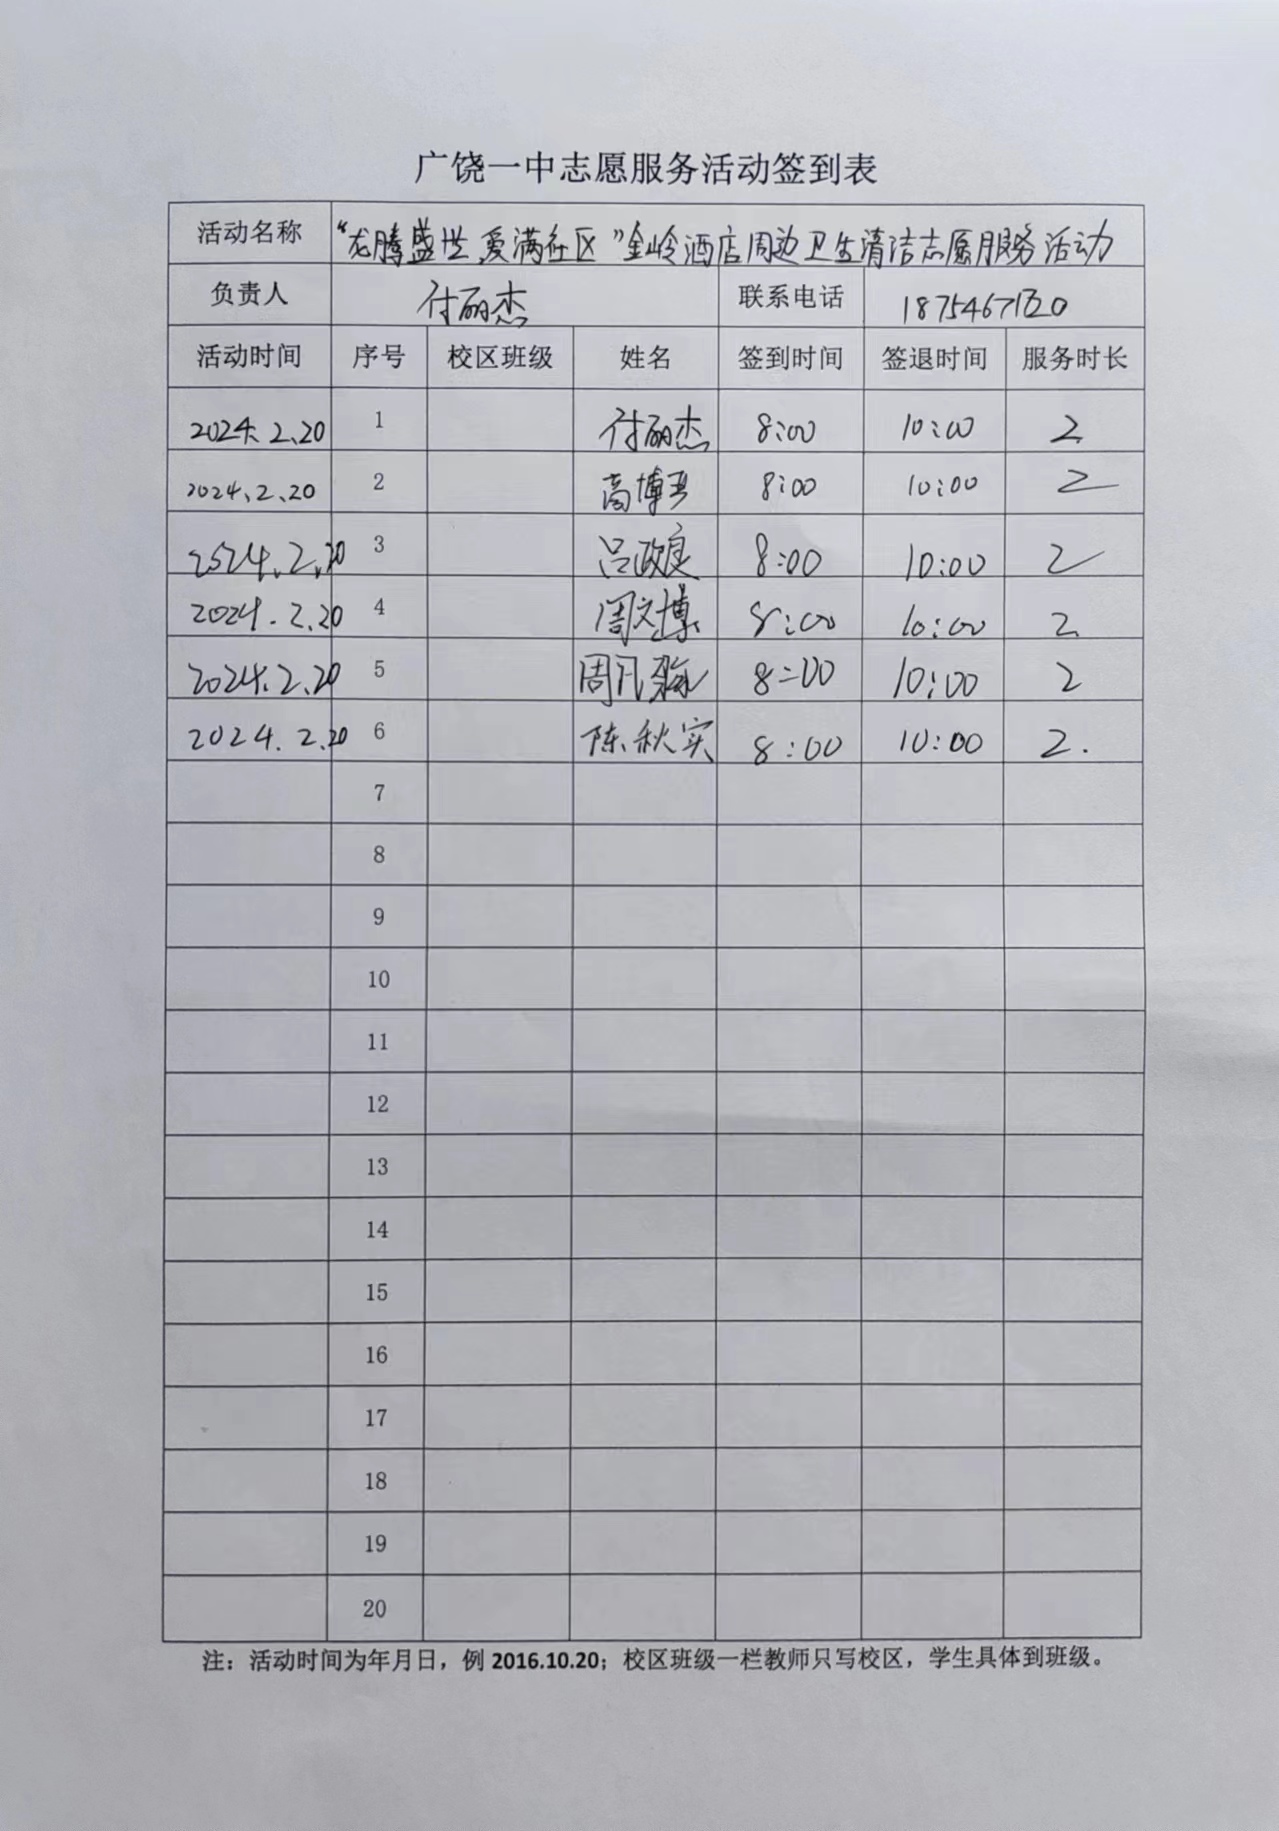 广饶一中志愿服务活动签到表
活动名称 “龙腾盛世,爱满社区”金岭酒店周边卫生清洁志愿服务活动
负责人 付丽杰 联系电话
活动时间 序号 校区班级 姓名 签到时间 签退时间 服务时长
2024.2.20 1 付丽杰 8:00 10:00 2
2024.2.20 2 高博 8:00 10:00 2
2524.2.20 3 吕政良 8:00 10:00 2
2024.2.20 4 周文博 8:00 10:00 2
2024.2.20 5 周凡 8:00 10:00 2
2024.2.20 6 陈秋实 8:00 10:00 2.
7
8
9
10
11
12
13
14
15
16
17
18
19
20
注：活动时间为年月日，例 2016.10.20；校区班级一栏教师只写校区，学生具体到班级。